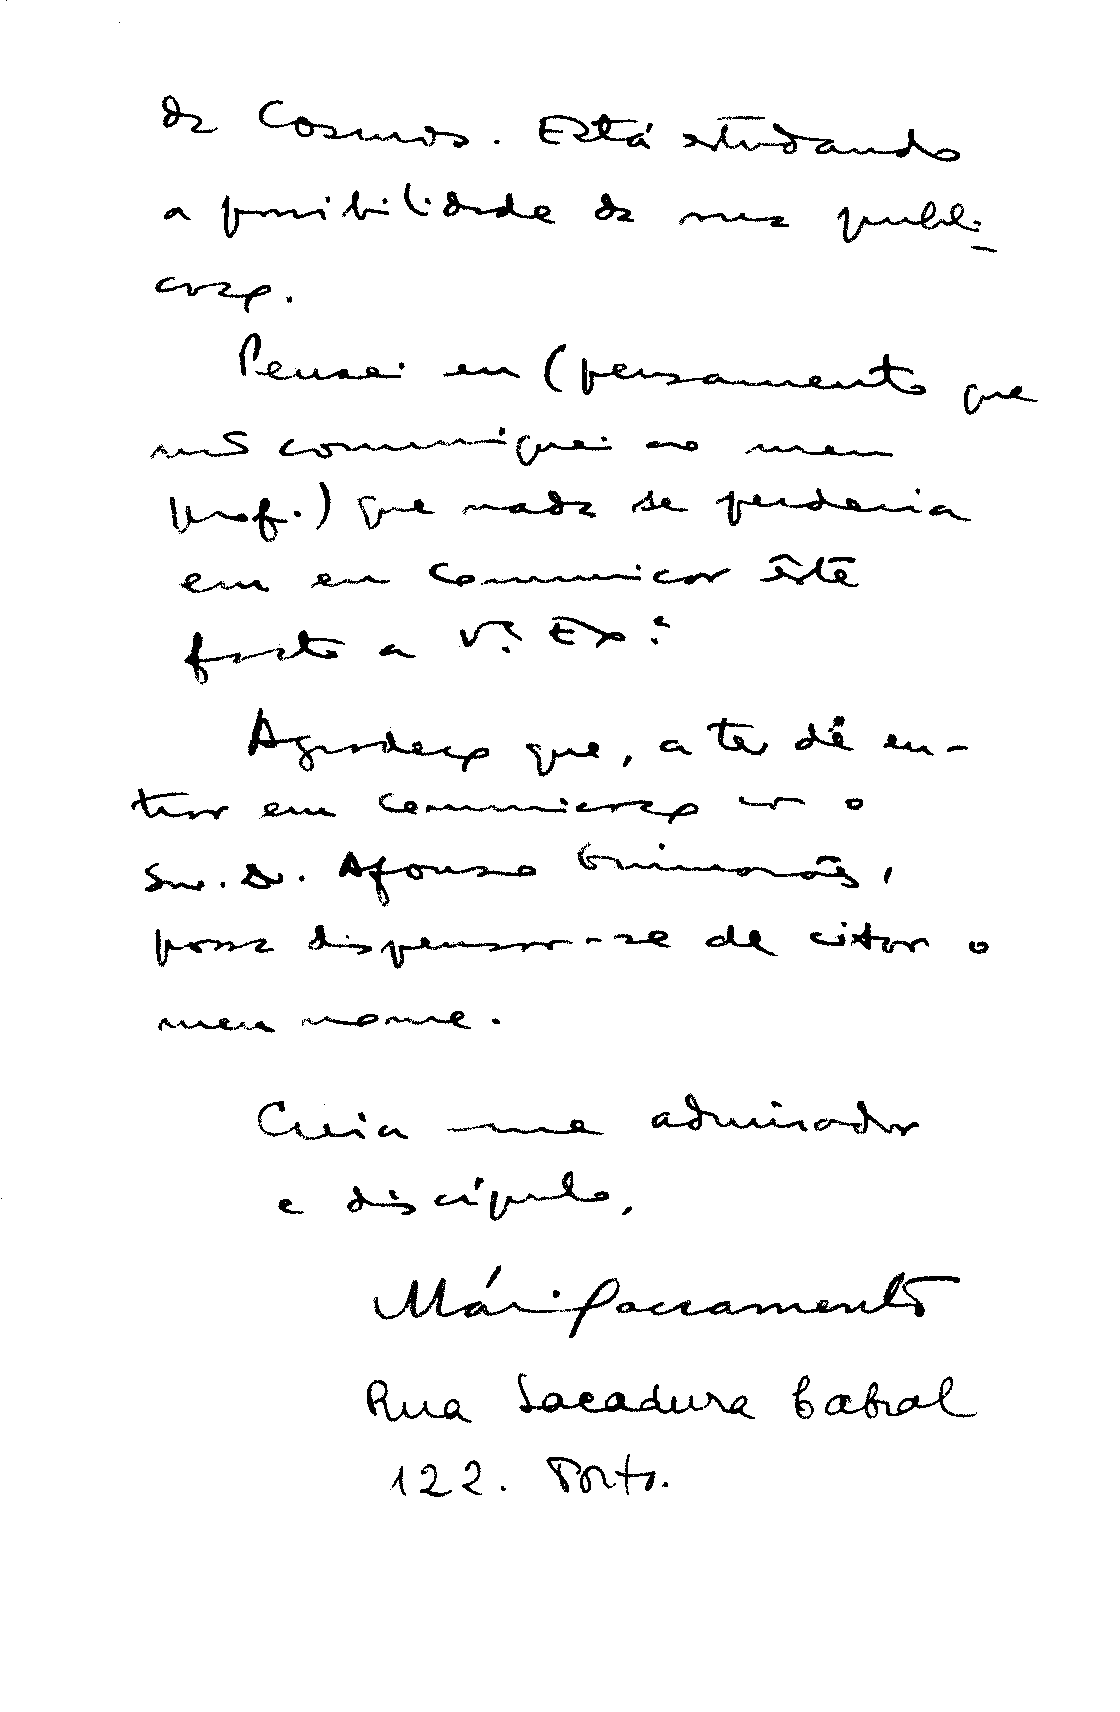 da Cosmos. Está estudando
a possibilidade da sua publi-
cação.
Pensei eu (pensamento que
não comuniquei ao meu
prof.) que nada se perderia
em eu comunicar êste
facto a V. Ex.ª
Agradeço que, a ter de en-
trar em comunicação com o
Snr. Dr. Afonso Guimarães,
possa dispensar-se de citar o
meu nome.
Creia-me admirador
e discípulo,
Mário Sacramento
Rua Sacadura Cabral
122. Porto.